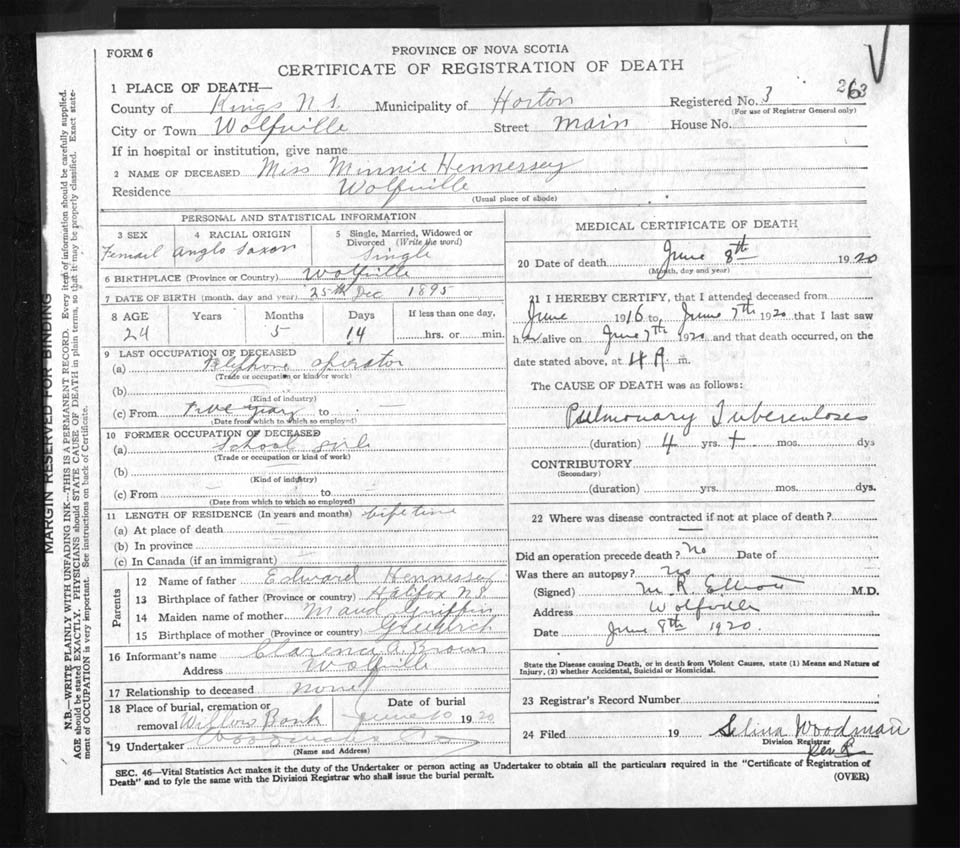 FORM 6
PROVINCE OF NOVA SCOTIA
CERTIFICATE OF REGISTRATION OF DEATH
1 PLACE OF DEATH—
County of Kings N.S. Municipality of Horton Registered No. 3 263
(For use of Registrar General only)
City or Town Wolfville Street Main House No.
If in hospital or institution, give name
2 NAME OF DECEASED Miss Minnie Hennessey
Residence Wolfville
(Usual place of abode)
PERSONAL AND STATISTICAL INFORMATION
3 SEX
Femail
4 RACIAL ORIGIN
Anglo Saxon
5 Single, Married, Widowed or Divorced (Write the word)
Single
6 BIRTHPLACE (Province or Country) Wolfville
7 DATE OF BIRTH (month, day and year) 25th Dec 1895
8 AGE Years Months Days If less than one day,
24 5 14 hrs. or min.
9 LAST OCCUPATION OF DECEASED
(a) Telephone operator
(Trade or occupation or kind or work)
(b)
(Kind of industry)
(c) From Five years to —
(Date from which to which so employed)
10 FORMER OCCUPATION OF DECEASED
(a) School girl
(Trade or occupation or kind of work)
(b)
(Kind of industry)
(c) From to
(Date from which to which so employed)
11 LENGTH OF RESIDENCE (In years and months) life time
(a) At place of death
(b) In province
(c) In Canada (if an immigrant)
Parents
12 Name of father Edward Hennessey
13 Birthplace of father (Province or country) Halifax NS
14 Maiden name of mother Maud Griffin
15 Birthplace of mother (Province or country) Greenwich
16 Informant's name Clarence A. Brown
Address Wolfville
17 Relationship to deceased none
18 Place of burial, cremation or removal Willow Bank
Date of burial
June 10 1920
19 Undertaker
(Name and Address)
MEDICAL CERTIFICATE OF DEATH
20 Date of death June 8th 1920
(Month, day and year)
21 I HEREBY CERTIFY, that I attended deceased from
June 1916 to June 7th 1920 that I last saw
her alive on June 7th 1920 and that death occurred, on the
date stated above, at 4 A. m.
The CAUSE OF DEATH was as follows:
Pulmonary Tuberculoses
(duration) 4 yrs. + mos. dys
CONTRIBUTORY
(Secondary)
(duration) yrs. mos. dys.
22 Where was disease contracted if not at place of death?
—
Did an operation precede death? No Date of
Was there an autopsy? No
(Signed) M. R. Elliott M.D.
Address Wolfville
Date June 8th 1920.
State the Disease causing Death, or in death from Violent Causes, state (1) Means and Nature of
Injury, (2) whether Accidental, Suicidal or Homicidal.
23 Registrar's Record Number
24 Filed 19 Selina Woodman
Division Registrar
SEC. 46—Vital Statistics Act makes it the duty of the Undertaker or person acting as Undertaker to obtain all the particulars required in the "Certificate of Registration of
Death" and to fyle the same with the Division Registrar who shall issue the burial permit.
(OVER)
MARGIN RESERVED FOR BINDING
N.B.—WRITE PLAINLY WITH UNFADING INK—THIS IS A PERMANENT RECORD. Every item of information should be carefully supplied.
AGE should be stated EXACTLY. PHYSICIANS should STATE CAUSE OF DEATH in plain terms, so that it may be properly classified. Exact state-
ment of OCCUPATION is very important. See instructions on back of Certificate.